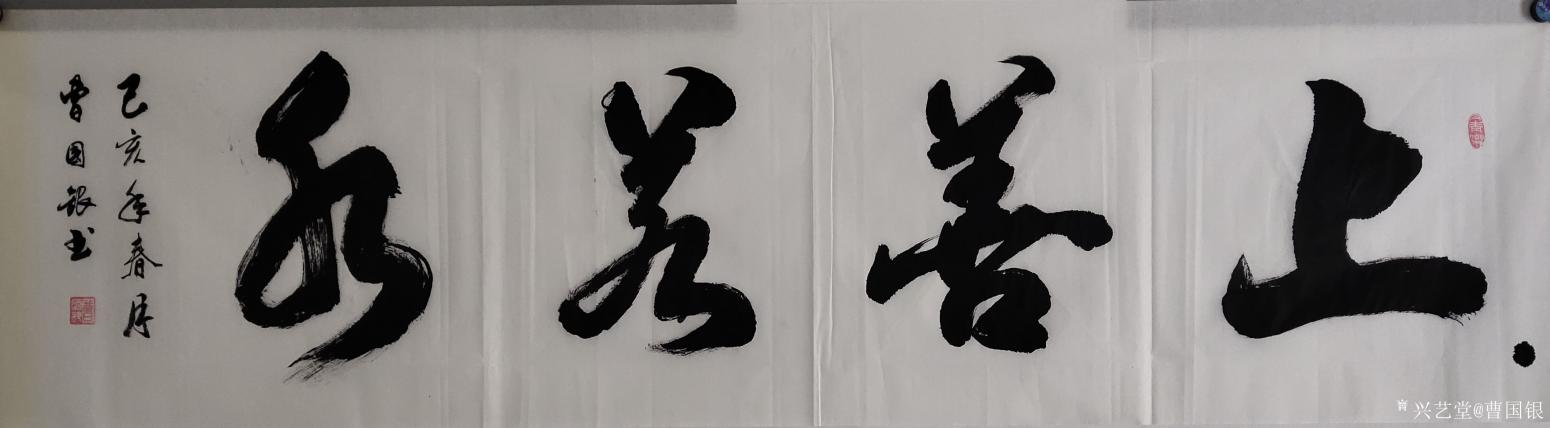 上善若水
己亥年春月
曹国银书
兴艺堂@曹国银